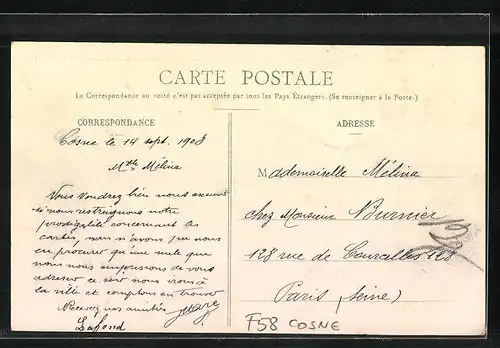 CARTE POSTALE
La Correspondance au recto n'est pas acceptée par tous les Pays Étrangers. (Se renseigner à la Poste.)
CORRESPONDANCE
Cosne le 14 sept. 1908
Mlle Mélina
Vous voudrez bien nous excuser
si nous restreignons notre
prodigalité concernant les
cartes, nous n'avons pu nous
en procurer qu'une seule que
nous nous empressons de vous
adresser ce soir nous irons à
la ville et comptons en trouver
Recevez nos amitiés
Lafond
ADRESSE
Mademoiselle Mélina
chez Monsieur Burnier
128 rue de Courcelles 128
Paris (Seine)
F58 COSNE